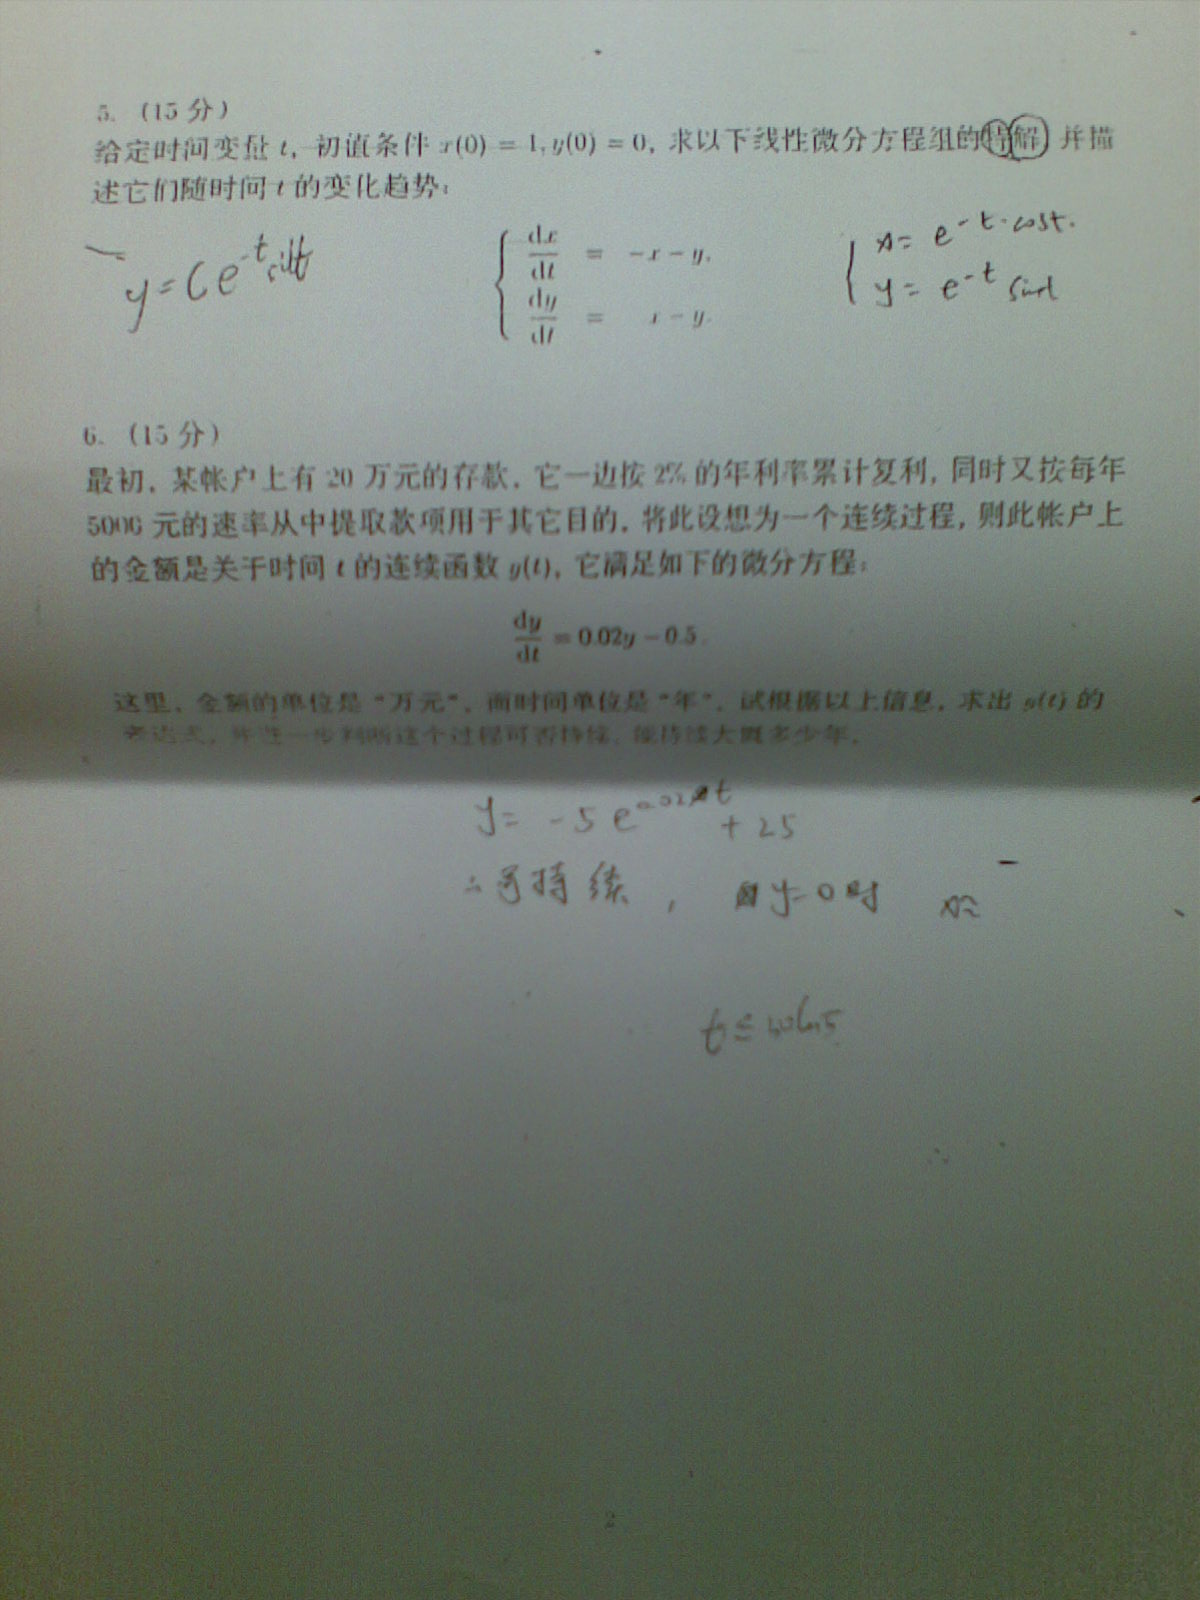 5. (15 分)
给定时间变量 t, 初值条件 x(0) = 1, y(0) = 0, 求以下线性微分方程组的特解 并描
述它们随时间 t 的变化趋势:
y = Ce^{-t} sint
dx/dt = -x - y,
dy/dt = x - y.
x = e^{-t}·cost.
y = e^{-t} sint
6. (15 分)
最初, 某帐户上有 20 万元的存款, 它一边按 2% 的年利率累计复利, 同时又按每年
5000 元的速率从中提取款项用于其它目的, 将此设想为一个连续过程, 则此帐户上
的金额是关于时间 t 的连续函数 y(t), 它满足如下的微分方程:
dy/dt = 0.02y - 0.5.
这里, 金额的单位是“万元”, 而时间单位是“年”, 试根据以上信息, 求出 y(t) 的
表达式, 并进一步判断这个过程可否持续, 能持续大概多少年.
y = -5e^{0.02t} + 25
∴ 可持续, y=0时
t ≤ 50ln5
2